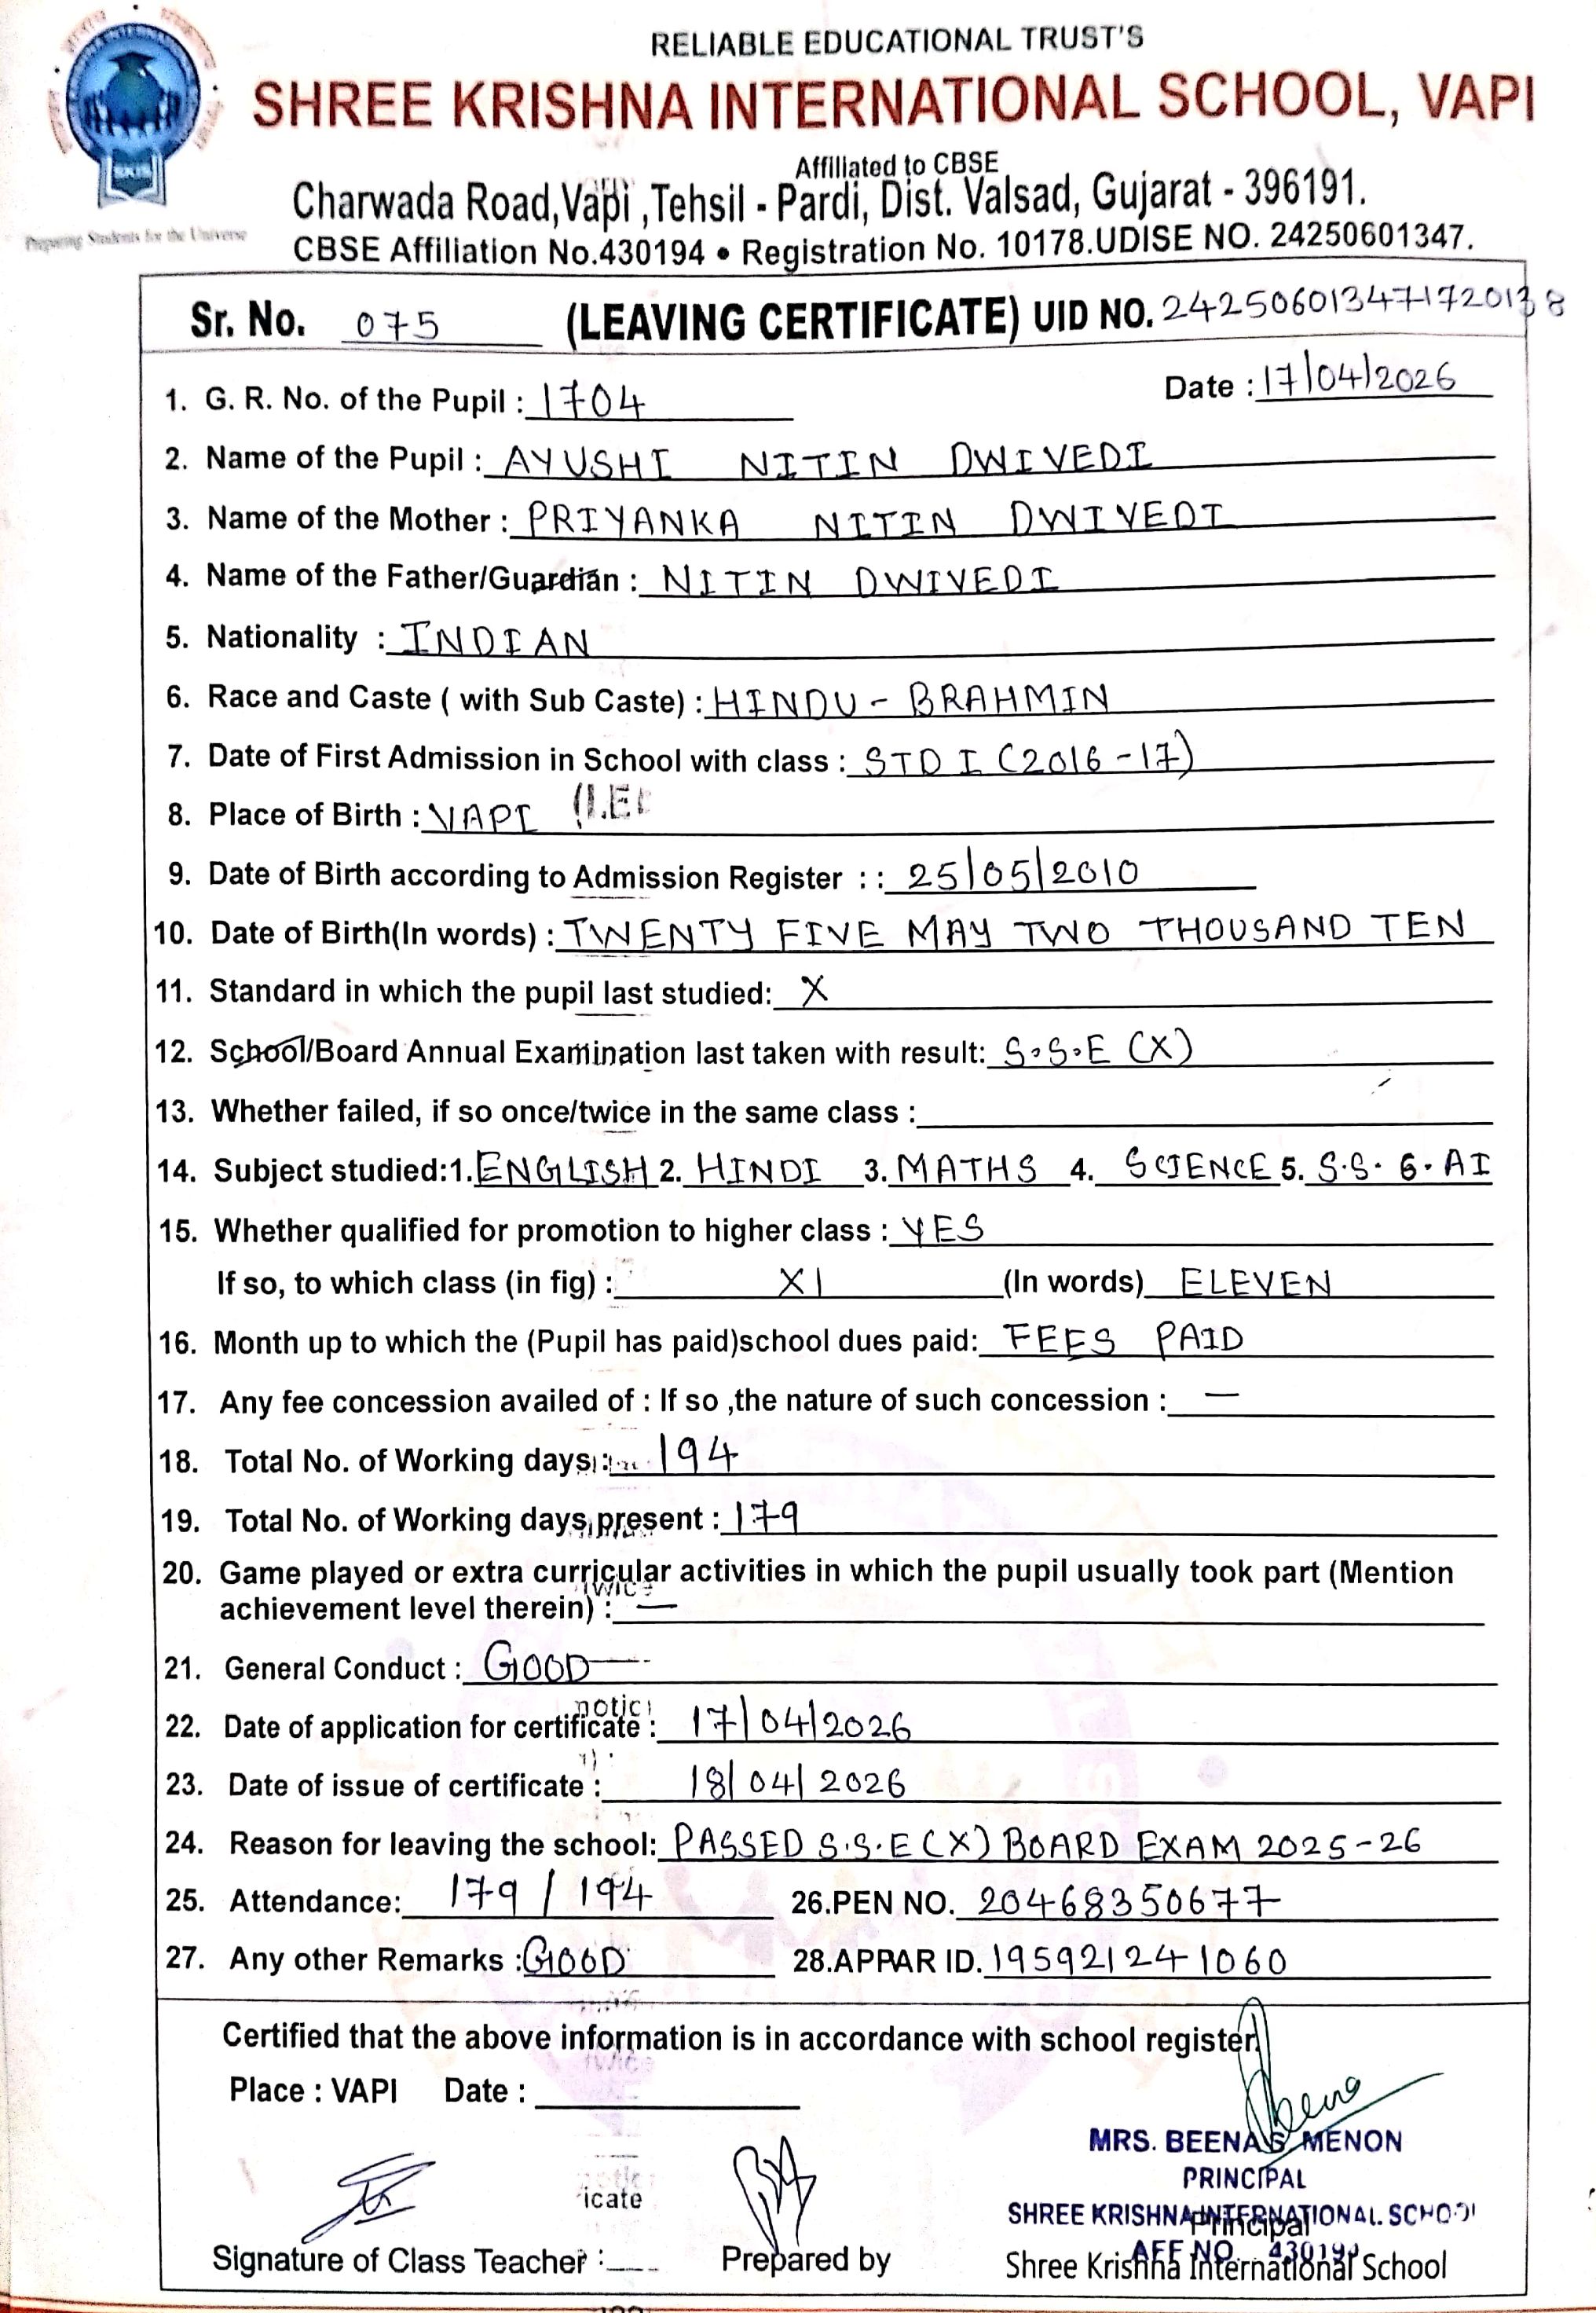 RELIABLE EDUCATIONAL TRUST'S
SHREE KRISHNA INTERNATIONAL SCHOOL, VAPI
Affiliated to CBSE
Charwada Road,Vapi ,Tehsil - Pardi, Dist. Valsad, Gujarat - 396191.
Preparing Students for the Universe
CBSE Affiliation No.430194 • Registration No. 10178.UDISE NO. 24250601347.
Sr. No. 075 (LEAVING CERTIFICATE) UID NO.
1. G. R. No. of the Pupil : 1704 Date : 17/04/2026
2. Name of the Pupil : AYUSHI NITIN DWIVEDI
3. Name of the Mother : PRIYANKA NITIN DWIVEDI
4. Name of the Father/Guardian : NITIN DWIVEDI
5. Nationality : INDIAN
6. Race and Caste ( with Sub Caste) : HINDU - BRAHMIN
7. Date of First Admission in School with class : STD I (2016-17)
8. Place of Birth : VAPI
9. Date of Birth according to Admission Register : : 25/05/2010
10. Date of Birth(In words) : TWENTY FIVE MAY TWO THOUSAND TEN
11. Standard in which the pupil last studied: X
12. School/Board Annual Examination last taken with result: S.S.E (X)
13. Whether failed, if so once/twice in the same class :
14. Subject studied:1. ENGLISH 2. HINDI 3. MATHS 4. SCIENCE 5. S.S. 6. AI
15. Whether qualified for promotion to higher class : YES
If so, to which class (in fig) : XI (In words) ELEVEN
16. Month up to which the (Pupil has paid)school dues paid: FEES PAID
17. Any fee concession availed of : If so ,the nature of such concession : —
18. Total No. of Working days : 194
19. Total No. of Working days present : 179
20. Game played or extra curricular activities in which the pupil usually took part (Mention
achievement level therein) : —
21. General Conduct : GOOD
22. Date of application for certificate : 17/04/2026
23. Date of issue of certificate : 18/04/2026
24. Reason for leaving the school: PASSED S.S.E (X) BOARD EXAM 2025-26
25. Attendance: 179 / 194 26.PEN NO. 20468350677
27. Any other Remarks : GOOD 28.APPAR ID. 195921241060
Certified that the above information is in accordance with school register.
Place : VAPI Date :
MRS. BEENA S. MENON
PRINCIPAL
SHREE KRISHNA INTERNATIONAL SCHOOL
Principal
AFF NO. 430194
Signature of Class Teacher : Prepared by Shree Krishna International School